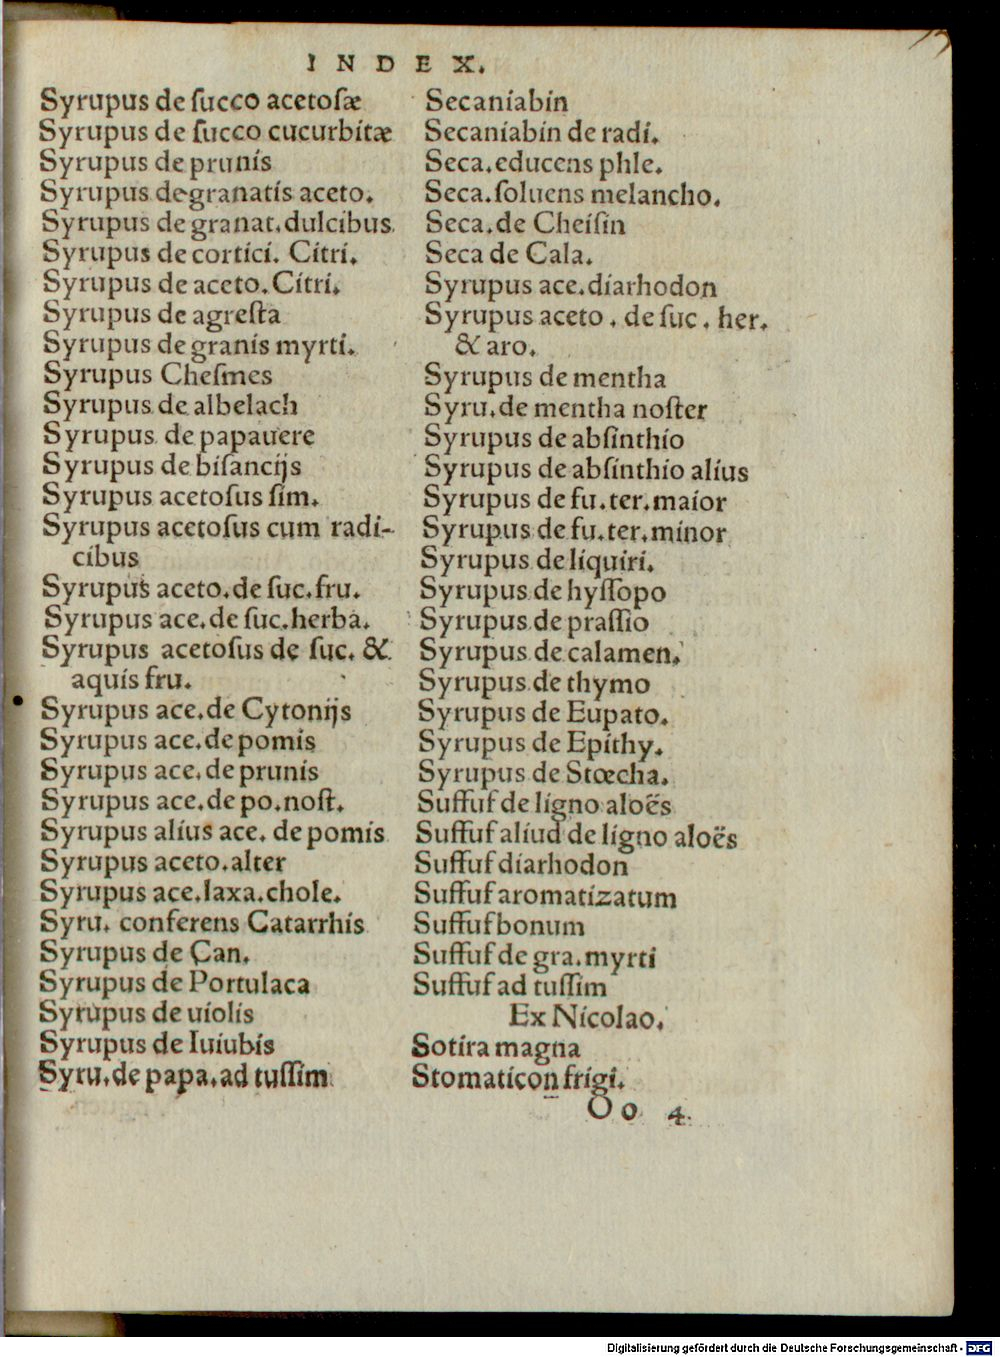 INDEX.
Syrupus de ſucco acetoſæ
Syrupus de ſucco cucurbitæ
Syrupus de prunis
Syrupus de granatis aceto.
Syrupus de granat. dulcibus.
Syrupus de cortici. Citri.
Syrupus de aceto. Citri.
Syrupus de agreſta
Syrupus de granis myrti.
Syrupus Cheſmes
Syrupus de albelach
Syrupus de papauere
Syrupus de biſancijs
Syrupus acetoſus ſim.
Syrupus acetoſus cum radi-
cibus
Syrupus aceto. de ſuc. fru.
Syrupus ace. de ſuc. herba.
Syrupus acetoſus de ſuc. &
aquis fru.
Syrupus ace. de Cytonijs
Syrupus ace. de pomis
Syrupus ace. de prunis
Syrupus ace. de po. noſt.
Syrupus alius ace. de pomis
Syrupus aceto. alter
Syrupus ace. laxa. chole.
Syru. conferens Catarrhis
Syrupus de Can.
Syrupus de Portulaca
Syrupus de uiolis
Syrupus de Iuiubis
Syru. de papa. ad tuſſim
Secaniabin
Secaniabin de radi.
Seca. educens phle.
Seca. ſoluens melancho.
Seca. de Cheiſin
Seca de Cala.
Syrupus ace. diarhodon
Syrupus aceto. de ſuc. her.
& aro.
Syrupus de mentha
Syru. de mentha noſter
Syrupus de abſinthio
Syrupus de abſinthio alius
Syrupus de fu. ter. maior
Syrupus de fu. ter. minor
Syrupus de liquiri.
Syrupus de hyſſopo
Syrupus de praſſio
Syrupus de calamen.
Syrupus de thymo
Syrupus de Eupato.
Syrupus de Epithy.
Syrupus de Stœcha.
Suffuf de ligno aloës
Suffuf aliud de ligno aloës
Suffuf diarhodon
Suffuf aromatizatum
Suffuf bonum
Suffuf de gra. myrti
Suffuf ad tuſſim
Ex Nicolao.
Sotira magna
Stomaticon frigi.
Oo 4
Digitalisierung gefördert durch die Deutsche Forschungsgemeinschaft - DFG